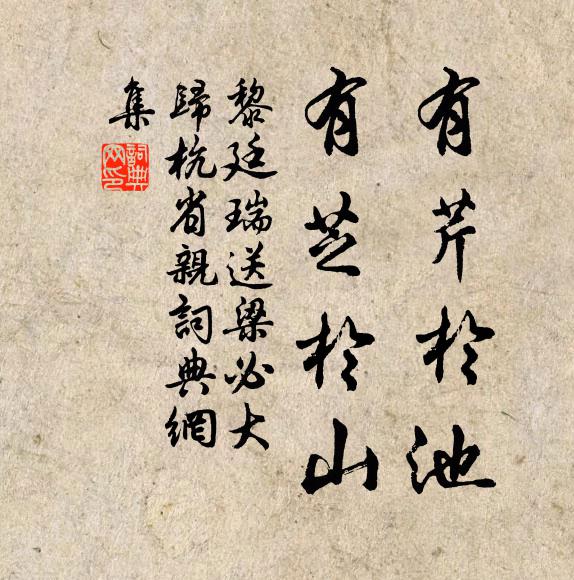 有芹於池
有芝於山
黎廷瑞送梁必大
歸杭省親詞典網
集
詞典
网印